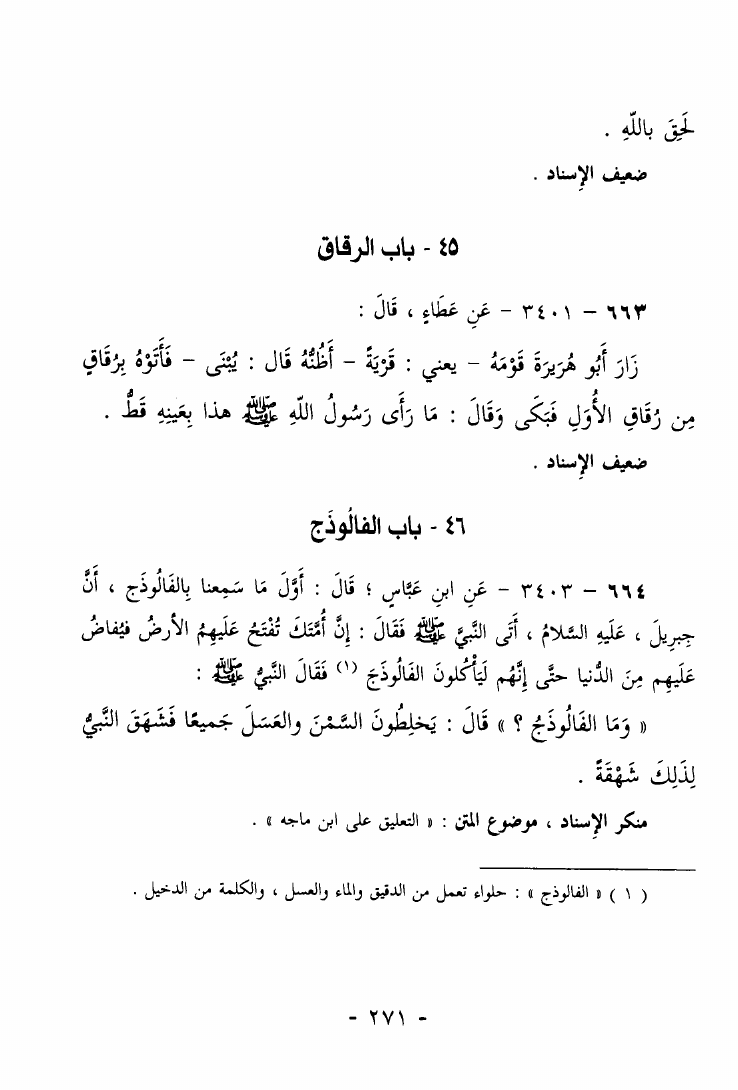 لَحِقَ باللَّهِ .
ضعيف الإسناد .
٤٥ - باب الرقاق
٦٦٣ – ٣٤٠١ – عَنِ عَطَاءٍ ، قَالَ :
زَارَ أَبُو هُرَيرَةَ قَوْمَهُ – يعني : قَرْيَةً – أَظُنُّهُ قَال : يُبْنَى – فَأَتَوْهُ بِرُقَاقٍ
مِن رُقَاقِ الأُوَلِ فَبَكَى وَقَالَ : مَا رَأَى رَسُولُ اللَّهِ ﷺ هذا بِعَينِهِ قَطُّ .
ضعيف الإسناد .
٤٦ - باب الفالُوذَج
٦٦٤ – ٣٤٠٣ – عَنِ ابنِ عَبَّاسٍ ؛ قَالَ : أَوَّلَ مَا سَمِعنا بِالفَالُوذَج ، أَنَّ
جِبرِيلَ ، عَلَيهِ السَّلامُ ، أَتَى النَّبيَّ ﷺ فَقَالَ : إِنَّ أُمَّتَكَ تُفْتَحُ عَلَيهِمُ الأرضُ فيُفاضُ
عَلَيهِم مِنَ الدُّنيا حتَّى إِنَّهُم لَيَأْكُلونَ الفَالُوذَجَ (١) فَقَالَ النَّبيُّ ﷺ :
« وَمَا الفَالُوذَجُ ؟ » قَالَ : يَخلِطُونَ السَّمْنَ والعَسَلَ جَميعًا فَشَهَقَ النَّبيُّ
لِذَلِكَ شَهْقَةً .
منكر الإسناد ، موضوع المتن : « التعليق على ابن ماجه » .
( ١ ) « الفالوذج » : حلواء تعمل من الدقيق والماء والعسل ، والكلمة من الدخيل .
- ٢٧١ -